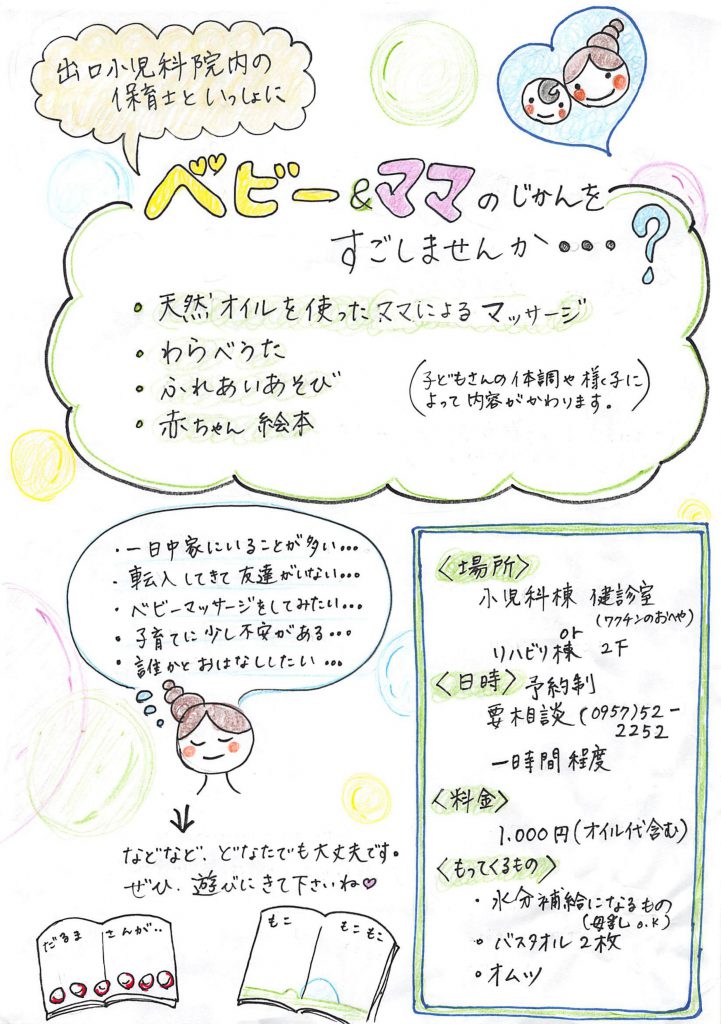 出口小児科院内の
保育士といっしょに
ベビー&ママのじかんを
すごしませんか・・・?
・天然オイルを使ったママによるマッサージ
・わらべうた
・ふれあいあそび
・赤ちゃん絵本
(子どもさんの体調や様子に
よって内容がかわります。)
・一日中家にいることが多い・・・
・転入してきて友達がいない・・・
・ベビーマッサージをしてみたい・・・
・子育てに少し不安がある・・・
・誰かとおはなししたい・・・
↓
などなど、どなたでも大丈夫です。
ぜひ、遊びにきて下さいね♡
だるま さんが・・
もこ もこもこ
〈場所〉
小児科棟 健診室
(ワクチンのおへや)
or
リハビリ棟 2F
〈日時〉予約制
要相談(0957)52-
2252
一時間程度
〈料金〉
1.000円(オイル代含む)
〈もってくるもの〉
・水分補給になるもの
(母乳o.k)
・バスタオル2枚
・オムツ